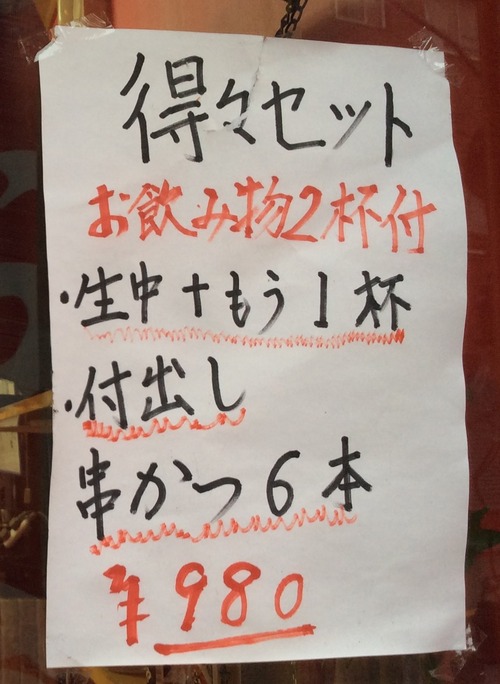 得々セット
お飲み物2杯付
・生中+もう1杯
・付出し
串かつ6本
¥980